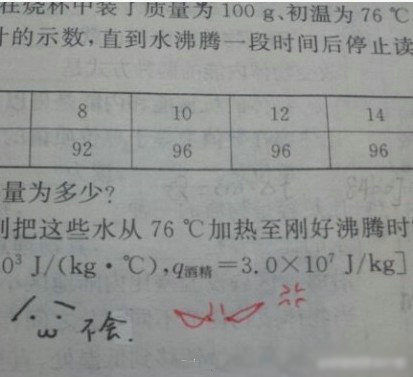 在烧杯中装了质量为 100 g、初温为 76 ℃
计的示数,直到水沸腾一段时间后停止读
8 10 12 14
92 96 96 96
量为多少?
则把这些水从 76 ℃加热至刚好沸腾时
0³ J/(kg·℃),q酒精=3.0×10⁷ J/kg]
不会.